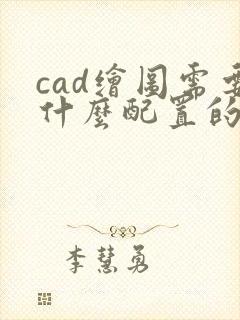 cad繪圖需要
什麼配置的
李慧勇